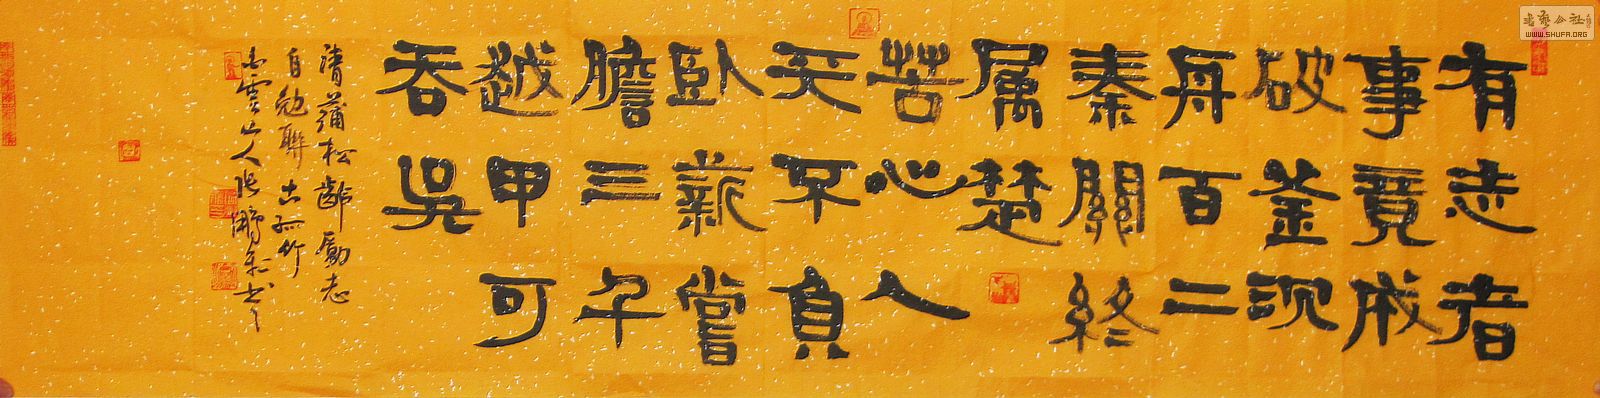 有志者
事竟成
破釜沉
舟百二
秦關終
属楚
苦心人
天不負
臥薪嘗
膽三千
越甲可
吞吳
清蒲松齡勵志
自勉聯 古孤竹
雲山人张书
书艺公社
WWW.SHUFA.ORG